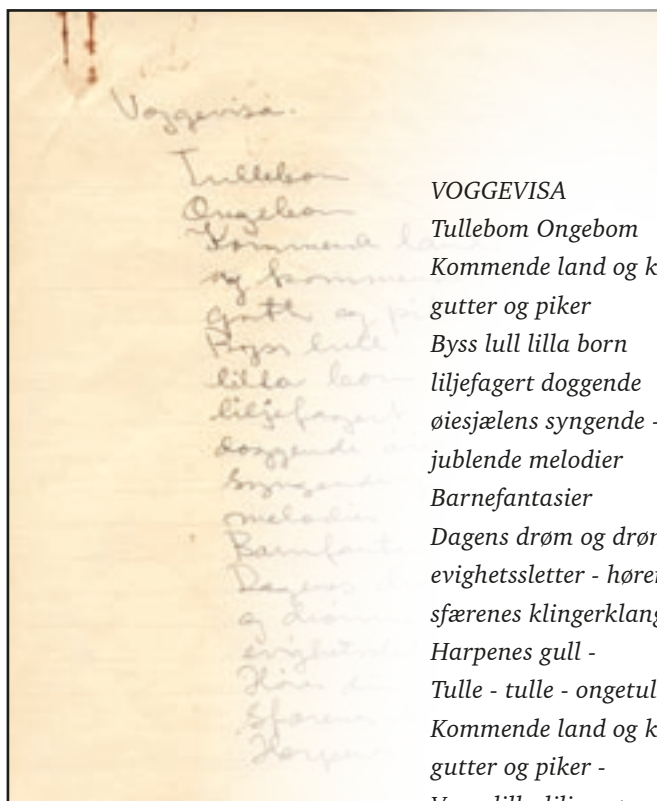 Voggevisa.
Tullebom
Ongebom
Kommende land
og kommende
gutter og pi
Byss lull
lilla born
liljefagert
doggende
syngende
melodier
Barnefant
Dagens d
og drøm
evighetssle
Hører du
Sfærenes
Harpenes
VOGGEVISA
Tullebom Ongebom
Kommende land og k
gutter og piker
Byss lull lilla born
liljefagert doggende
øiesjælens syngende -
jublende melodier
Barnefantasier
Dagens drøm og drø
evighetssletter - høre
sfærenes klingerklang
Harpenes gull -
Tulle - tulle - ongetul
Kommende land og k
gutter og piker -